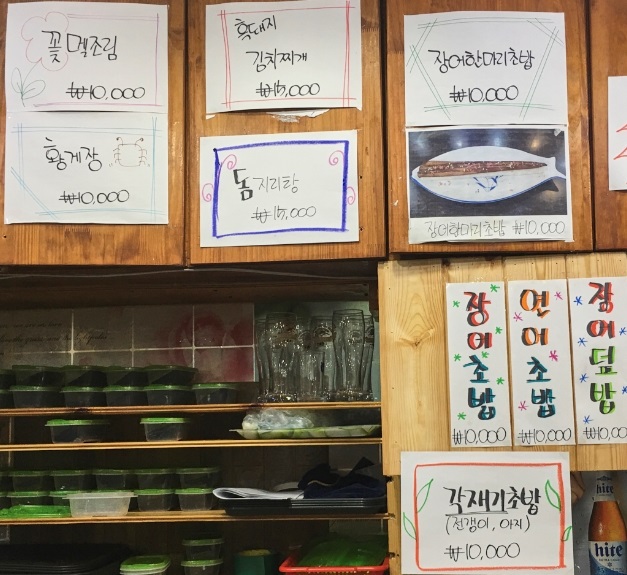 꽃멜조림
₩10,000
흑돼지
김치찌개
₩15,000
장어한마리초밥
₩10,000
황게장
₩10,000
돔지리탕
₩15,000
장어한마리초밥 ₩10,000
장어초밥
₩10,000
연어초밥
₩10,000
장어덮밥
₩10,00
각재기초밥
(전갱이, 아지)
₩10,000
hite
hite